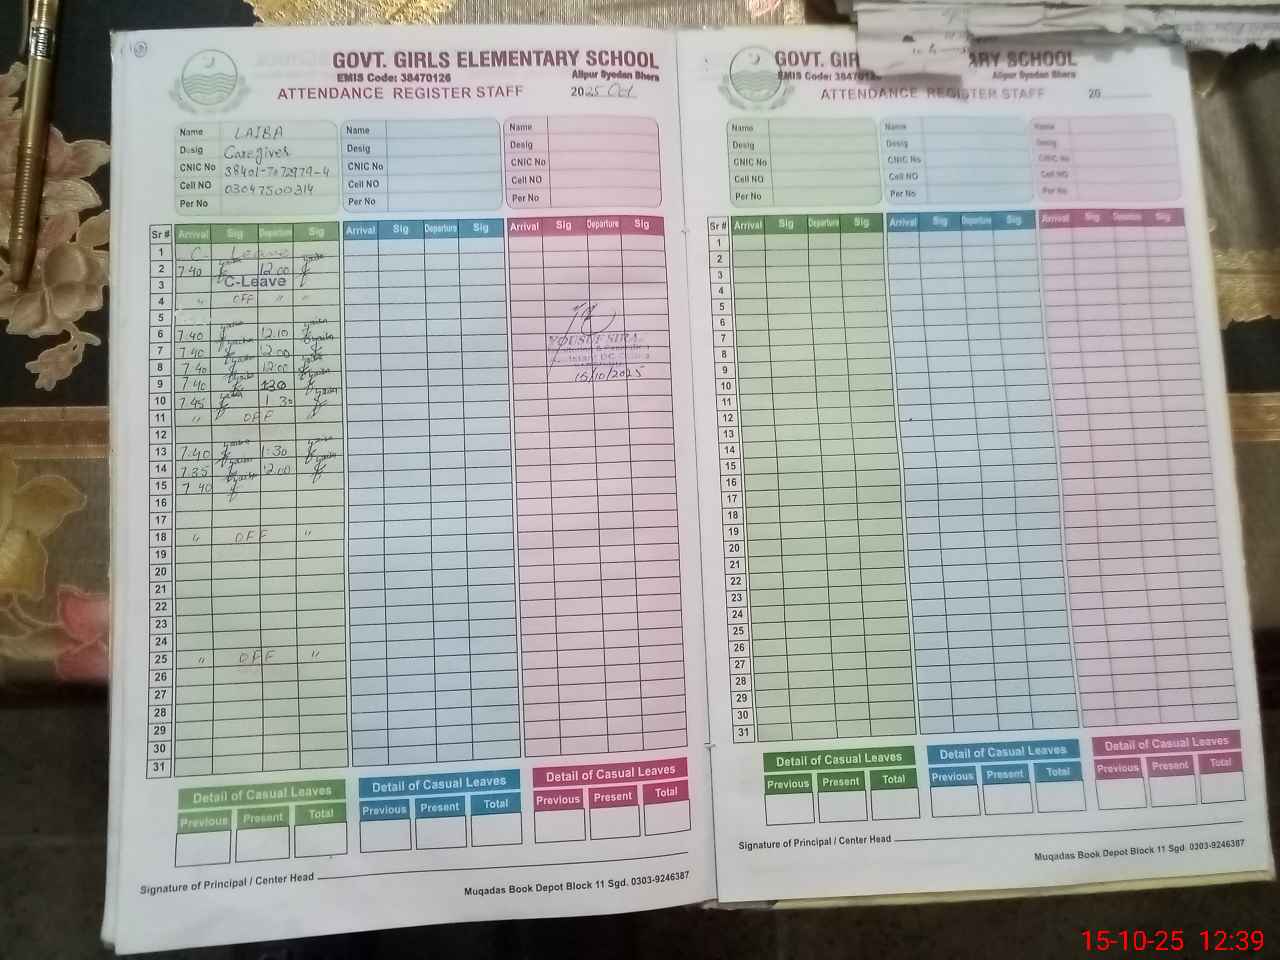 GOVT. GIRLS ELEMENTARY SCHOOL
EMIS Code: 38470126 Alipur Syedan Bhera
ATTENDANCE REGISTER STAFF 2025 Oct
Name LAIBA Name Name
Desig Caregiver Desig Desig
CNIC No 38401-7072979-4 CNIC No CNIC No
Cell NO 03047500314 Cell NO Cell NO
Per No Per No Per No
Sr # Arrival Sig Departure Sig Arrival Sig Departure Sig Arrival Sig Departure Sig
1 C. Leave
2 7.40 12.00
3 C-Leave
4 " OFF " "
5
6 7.40 12.10
7 7.40 12.00
8 7.40 12.00
9 7.40 130
10 7.45 1 30
11 " OFF "
12
13 7.40 1.30
14 7.35 12.00
15 7 40
16
17
18 " OFF "
19
20
21
22
23
24
25 " OFF "
26
27
28
29
30
31
15/10/2025
Detail of Casual Leaves Detail of Casual Leaves Detail of Casual Leaves
Previous Present Total Previous Present Total Previous Present Total
Signature of Principal / Center Head
Muqadas Book Depot Block 11 Sgd. 0303-9246387
GOVT. GIR ARY SCHOOL
EMIS Code: 384701 Alipur Syedan Bhera
ATTENDANCE REGISTER STAFF 20
Name Name Name
Desig Desig Desig
CNIC No CNIC No CNIC No
Cell NO Cell NO Cell NO
Per No Per No Per No
Sr# Arrival Sig Departure Sig Arrival Sig Departure Sig Arrival Sig Departure Sig
1
2
3
4
5
6
7
8
9
10
11
12
13
14
15
16
17
18
19
20
21
22
23
24
25
26
27
28
29
30
31
Detail of Casual Leaves Detail of Casual Leaves Detail of Casual Leaves
Previous Present Total Previous Present Total Previous Present Total
Signature of Principal / Center Head
Muqadas Book Depot Block 11 Sgd. 0303-9246387
15-10-25 12:39